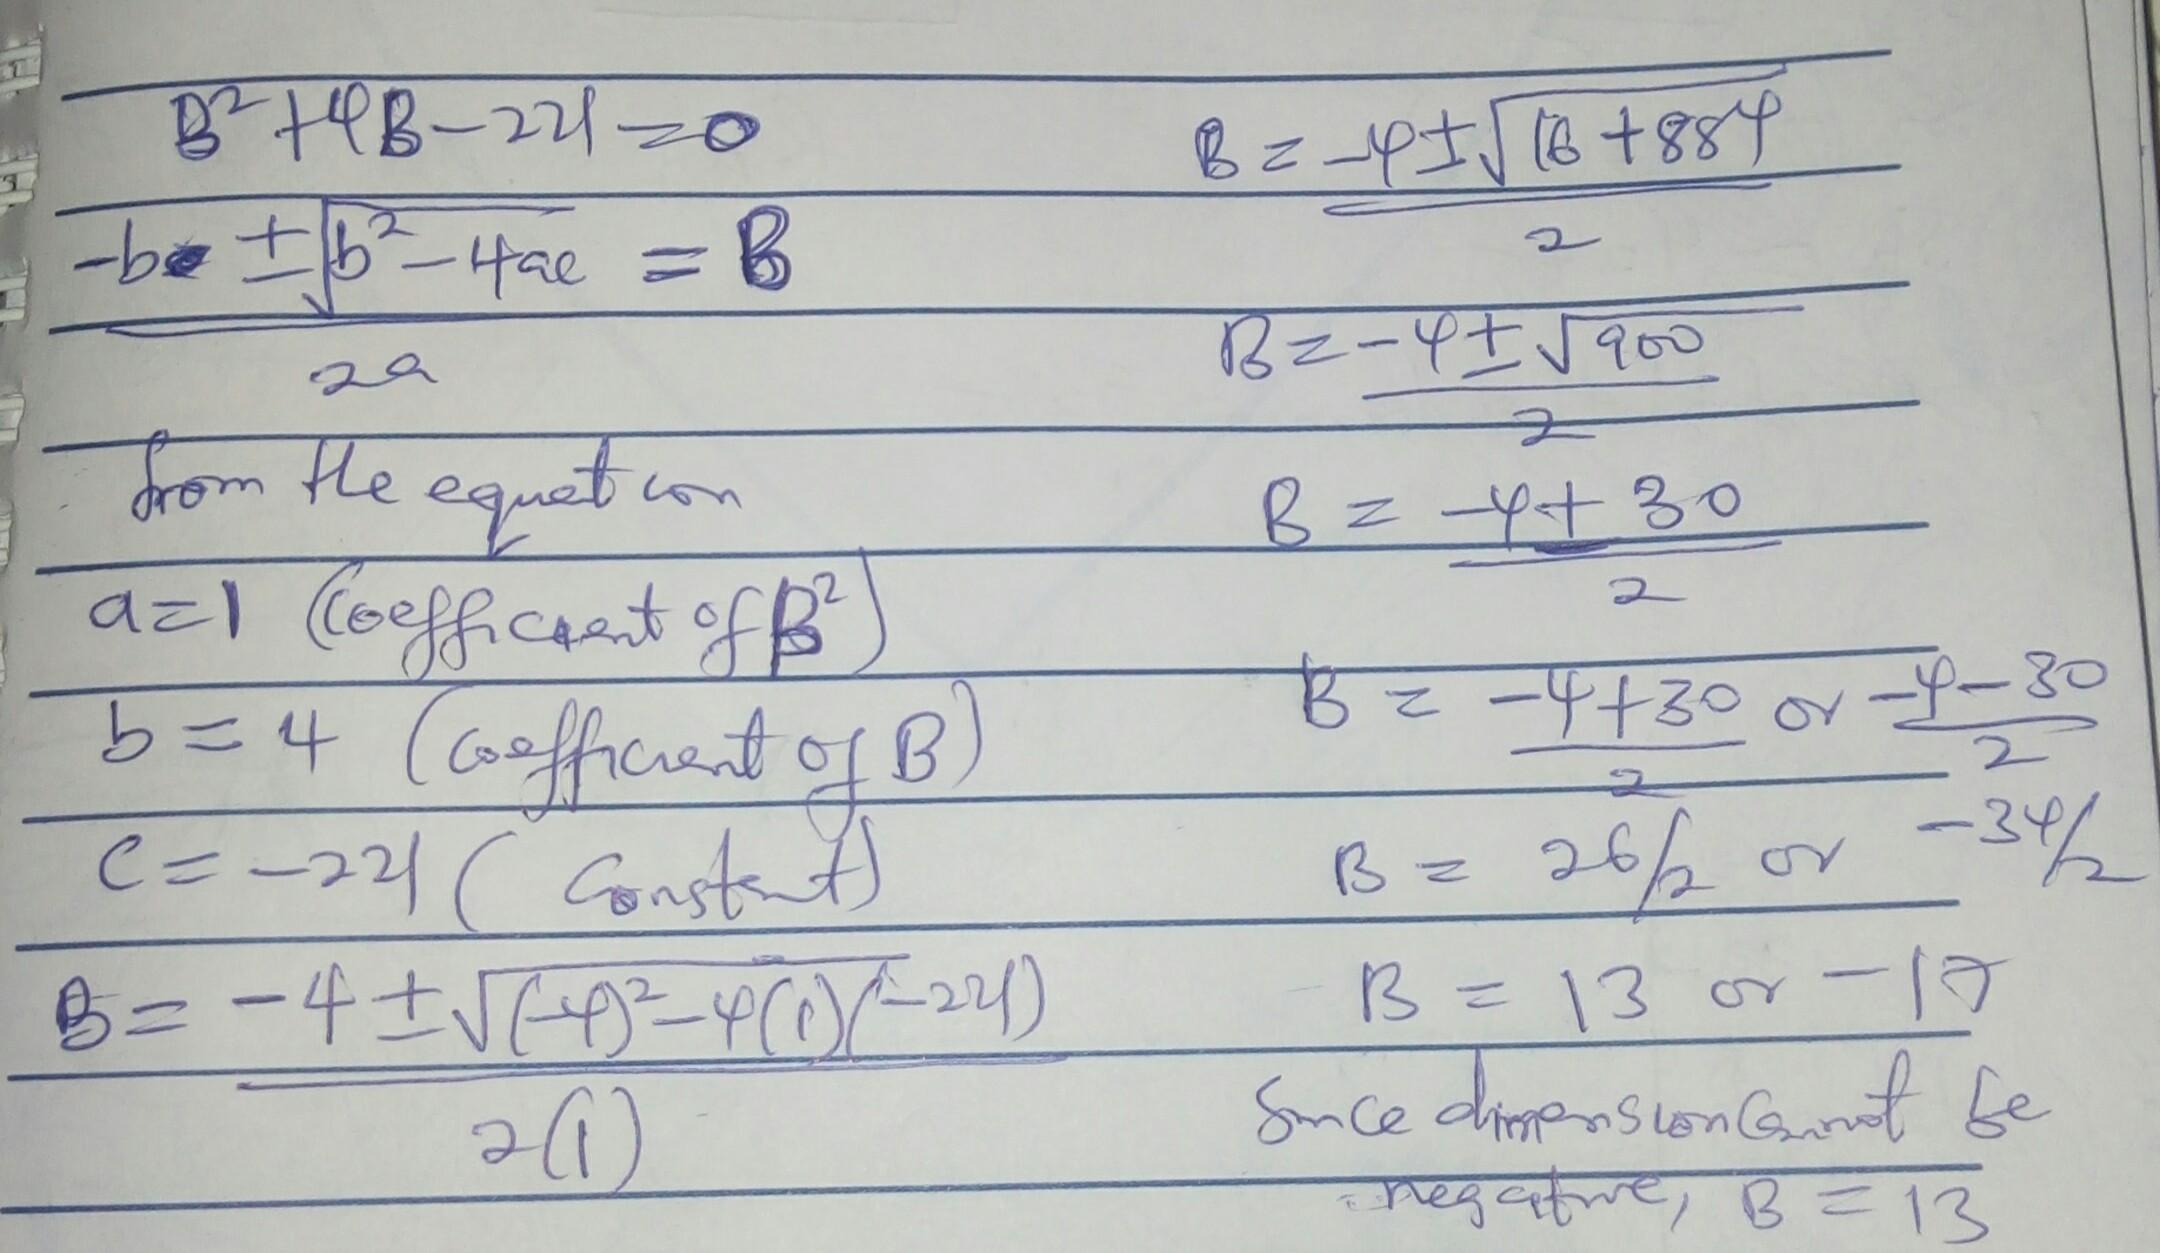 B² + 4B - 221 = 0
-b ± √b² - 4ac = B
2a
from the equation
a = 1 (Coefficient of B²)
b = 4 (Coefficient of B)
C = -221 (Constant)
B = -4 ± √(-4)² - 4(1)(-221)
2(1)
B = -4 ± √16 + 884
2
B = -4 ± √900
2
B = -4 ± 30
2
B = -4 + 30 or -4 - 30
2 2
B = 26/2 or -34/2
B = 13 or -17
Since dimension Cannot be
negative, B = 13